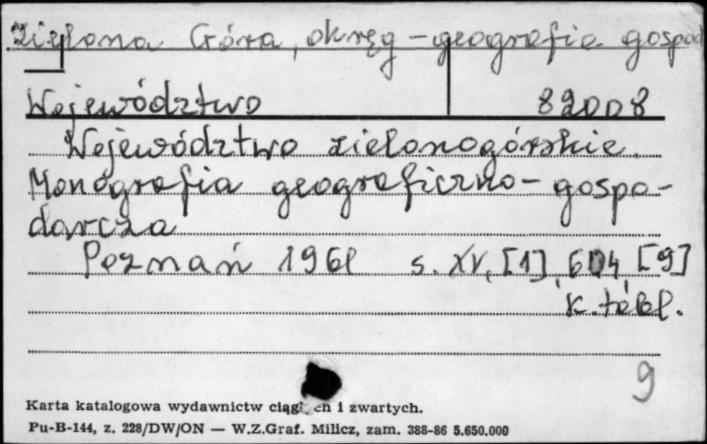 Zielona Góra, okręg - geografia gospod
Województwo 82008
Województwo zielonogórskie.
Monografia geograficzno - gospo-
darcza
Poznań 1961 s. XV, [1], 604 [9]
k. tabl.
9
Karta katalogowa wydawnictw ciągłych i zwartych.
Pu-B-144, z. 228/DW/ON — W.Z.Graf. Milicz, zam. 388-86 5.650.000